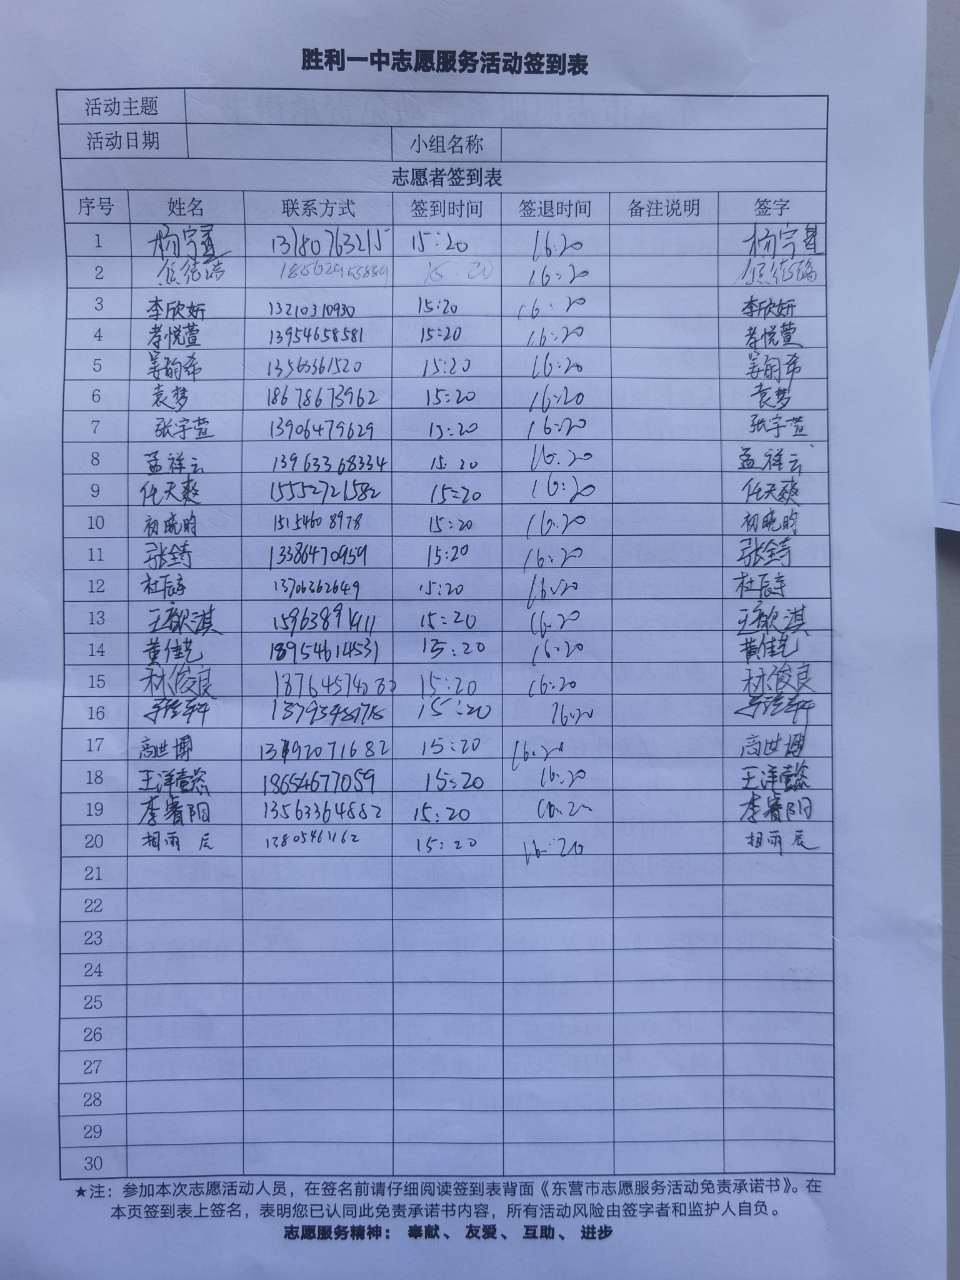 胜利一中志愿服务活动签到表
活动主题
活动日期 小组名称
志愿者签到表
序号 姓名 联系方式 签到时间 签退时间 备注说明 签字
1 杨宇 13780763215 15:20 16:20 杨宇
2 15:20 16:20
3 李欣妍 13210310930 15:20 16:20 李欣妍
4 李悦萱 13954658581 15:20 16:20 李悦萱
5 姜韵希 13563361520 15:20 16:20 姜韵希
6 袁梦 18678673962 15:20 16:20 袁梦
7 张宇萱 13906479629 15:20 16:20 张宇萱
8 孟祥云 13963368334 15:20 16:20 孟祥云
9 任天爽 15552721582 15:20 16:20 任天爽
10 初晓昀 15154608978 15:20 16:20 初晓昀
11 13386470959 15:20 16:20
12 杜辰 13706362649 15:20 16:20 杜辰
13 王歆淇 15963891411 15:20 16:20 王歆淇
14 黄佳艺 18954614531 15:20 16:20 黄佳艺
15 林俊良 15:20 16:20 林俊良
16 15:20 16:20
17 高世博 15:20 16:20 高世博
18 王洋懿 18654677059 15:20 16:20 王洋懿
19 李睿阳 13563364882 15:20 16:20 李睿阳
20 相雨辰 15:20 16:20 相雨辰
21
22
23
24
25
26
27
28
29
30
★注：参加本次志愿活动人员，在签名前请仔细阅读签到表背面《东营市志愿服务活动免责承诺书》。在
本页签到表上签名，表明您已认同此免责承诺书内容，所有活动风险由签字者和监护人自负。
志愿服务精神： 奉献、 友爱、 互助、 进步